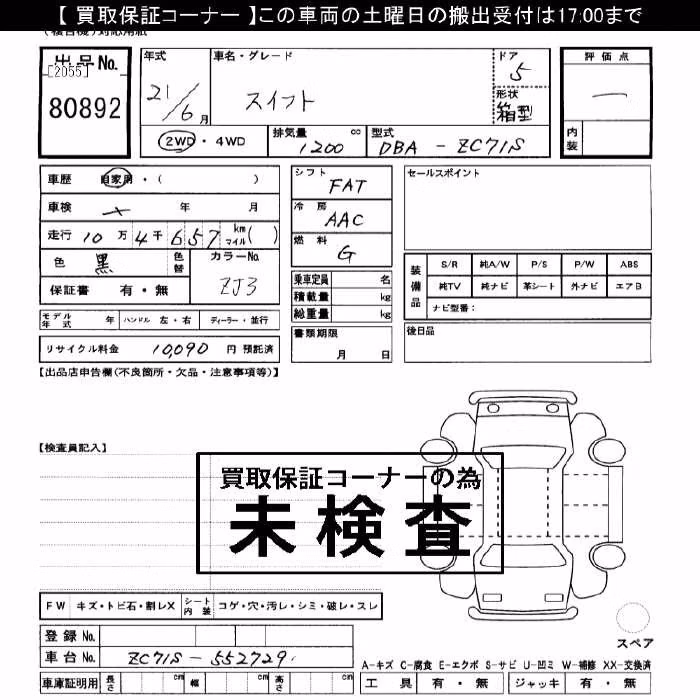 【 買取保証コーナー 】この車両の土曜日の搬出受付は17:00まで
出品No.
[2055]
80892
年式
21/6月
車名・グレード
スイフト
ドア
5
形状
箱型
評価点
一
内装
2WD・4WD
排気量 cc
1200
型式
DBA - ZC71S
車歴 自家用・( )
車検 × 年 月
走行 10万4千657 km マイル( )
色 黒 色替
カラーNo.
ZJ3
保証書 有・無
シフト
FAT
冷房
AAC
燃料
G
乗車定員 名
積載量 kg
総重量 kg
書類期限
月 日
セールスポイント
装備品
S/R 純A/W P/S P/W ABS
純TV 純ナビ 革シート 外ナビ エアB
ナビ型番:
後日品
モデル年式 年 ハンドル 左・右 ディーラー・並行
リサイクル料金 10,090 円 預託済
【出品店申告欄(不良箇所・欠品・注意事項等)】
【検査員記入】
買取保証コーナーの為
未検査
FW キズ・トビ石・割レX シート内装 コゲ・穴・汚レ・シミ・破レ・スレ
登録No.
車台No. ZC71S-552729
車庫証明用 長さ cm 幅 cm 高さ cm
スペア
A-キズ C-腐食 E-エクボ S-サビ U-凹ミ W-補修 XX-交換済
工具 有・無 ジャッキ 有・無